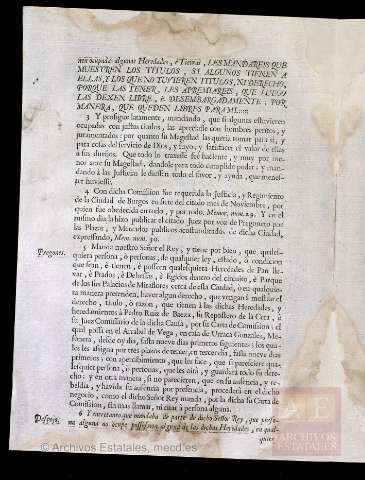 nen ocupado algunas Heredades, è Tierras, LES MANDAREIS QUE
MUESTREN LOS TITULOS, SI ALGUNOS TIENEN A
ELLAS, Y LOS QUE NO TUVIEREN TITULOS, NI DERECHO,
PORQUE LAS TENER, LES APREMIAREIS, QUE LUEGO
LAS DEXEN LIBRE, è DESEMBARGADAMENTE, POR
MANERA, QUE QUEDEN LIBRES PARA MI.
3 Y prosigue latamente, mandando, que si algunas estuvieren
ocupadas con justos titulos, las apreciasse con hombres peritos, y
juramentados: por quanto su Magestad las queria tomar para sì, y
para cosas del servicio de Dios, y suyo, y satisfacer el valor de ellas
à sus dueños. Que todo lo traxesse fee haciente, y muy por me-
nor ante su Magestad, dandole para todo cumplido poder: y man-
dando à las Justicias le diessen todo el favor, y ayuda, que menes-
ter huviesse.
4 Con dicha Comission fue requerida la Justicia, y Regimiento
de la Ciudad de Burgos en siete del citado mes de Noviembre, por
quien fue obedecida en todo, y por todo, Memor. num. 29. Y en el
mismo dia la hizo publicar el citado Juez por voz de Pregonero por
las Plazas, y Mercados publicos acostumbrados de dicha Ciudad,
expressando, Mem. num. 30.
Pregones.
5 Manda nuestro Señor el Rey, y tiene por bien, que quales-
quiera persona, ò personas, de qualquier ley, estado, ò condicion
que sean, è tienen, è posseen qualesquiera Heredades de Pan lle-
var, è Prados, è Dehessas, è Egidos dentro del circuito, è Parque
de los sus Palacios de Miraflores cerca de esta Ciudad, ò en qualquie-
ra manera pretenden, haver algun derecho, que vengan à mostrar el
derecho, titulo, ò razon, que tienen à las dichas Heredades, y
heredamientos à Pedro Ruiz de Baeza, su Repostero de la Cera, è
su Juez Comissario de la dicha Causa, por su Carta de Comission: el
qual possa en el Arrabal de Vega, en casa de Urraca Gonzalez, Me-
sonera, desde oy dia, fasta nueve dias primeros siguientes: los qua-
les les assigna por tres plazos de tercer, en tercer dia, fasta nueve dias
primeros, con apercibimiento, que les face, que si pareciere qua-
lesquier persona, ò personas, que les oirà, y guardarà todo su dere-
cho: y en otra manera, si no parecieren, que en su ausencia, y re-
beldia, y havida su ausencia por presencia, procederà en el dicho
negocio, como el dicho Señor Rey manda, por la dicha su Carta de
Comission, sin mas llamar, ni citar à persona alguna.
Despojo.
6 Y entretanto que mandaba de parte de dicho Señor Rey, que perso-
na alguna no ocupe possession alguna de las dichas Heredades, en qual-
quier
© Archivos Estatales, mecd.es
ARCHIVOS
ESTATALES